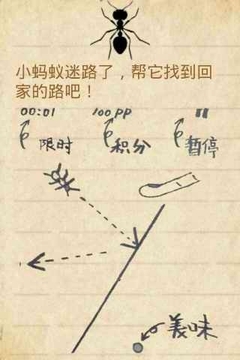 小蚂蚁迷路了，帮它找到回
家的路吧！
00:01 100PP
限时 积分 暂停
美味